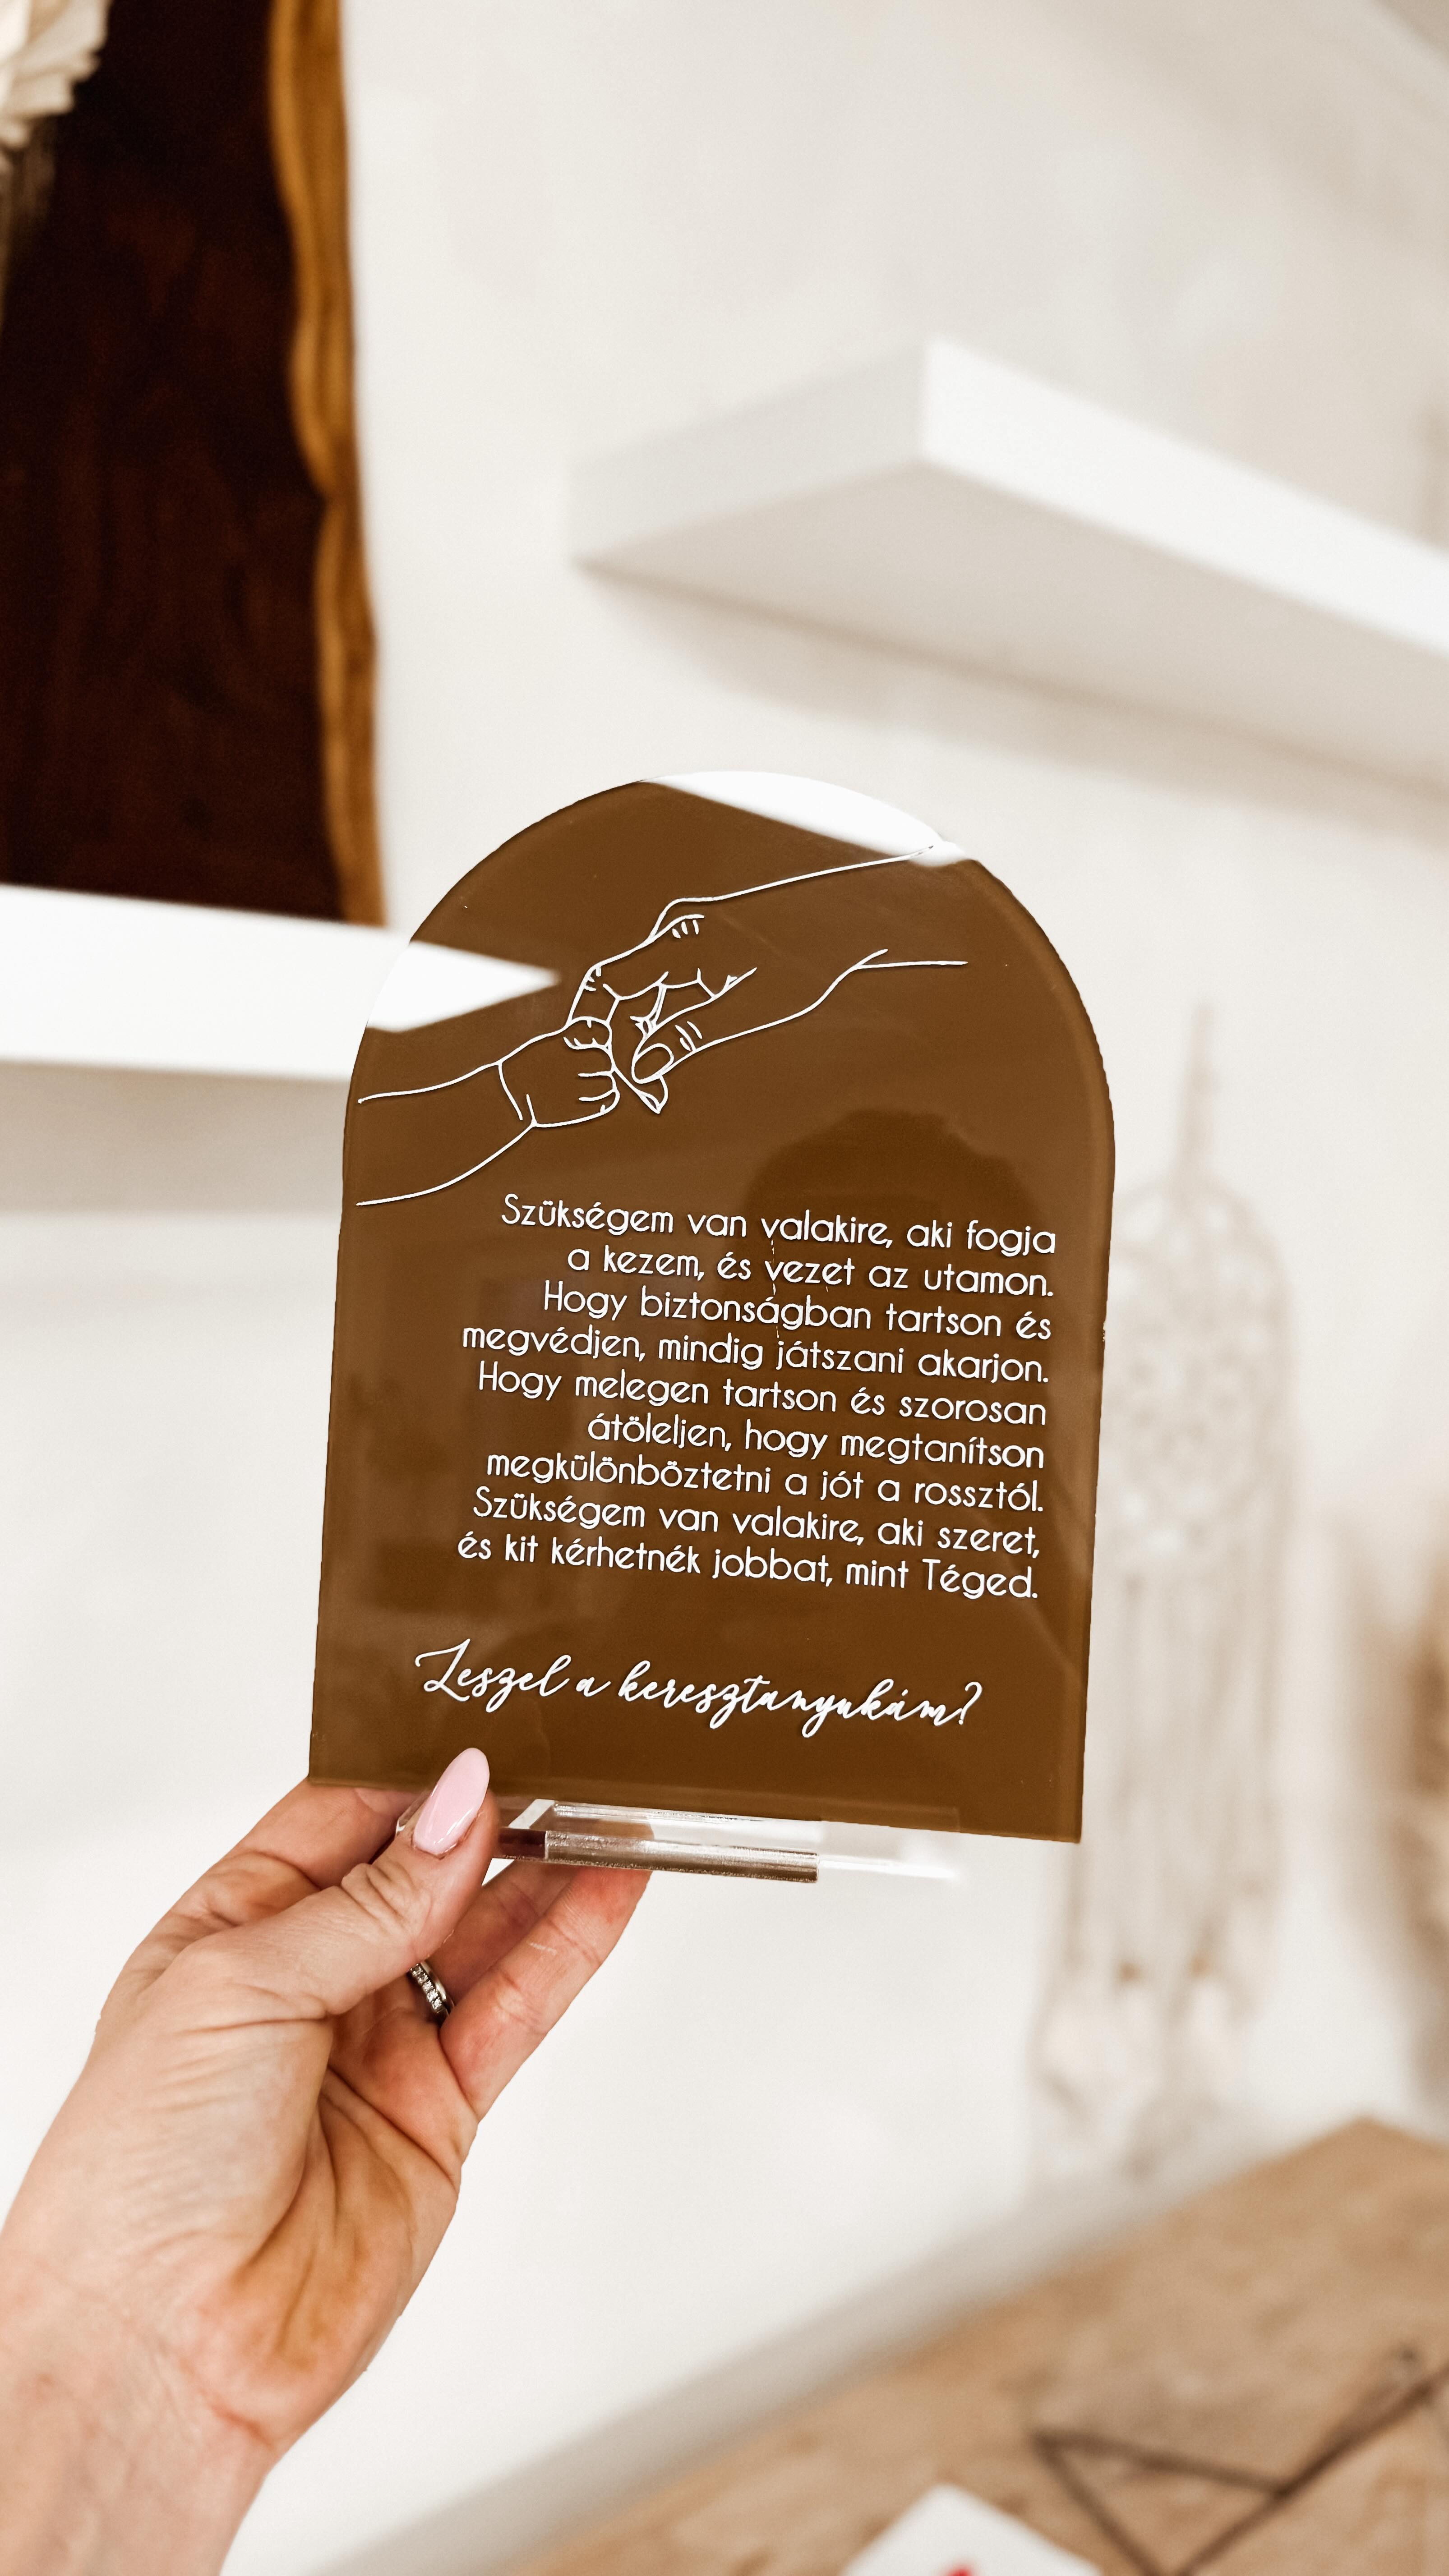 Szükségem van valakire, aki fogja
a kezem, és vezet az utamon.
Hogy biztonságban tartson és
megvédjen, mindig játszani akarjon.
Hogy melegen tartson és szorosan
átöleljen, hogy megtanítson
megkülönböztetni a jót a rossztól.
Szükségem van valakire, aki szeret,
és kit kérhetnék jobbat, mint Téged.
Leszel a keresztanyukám?